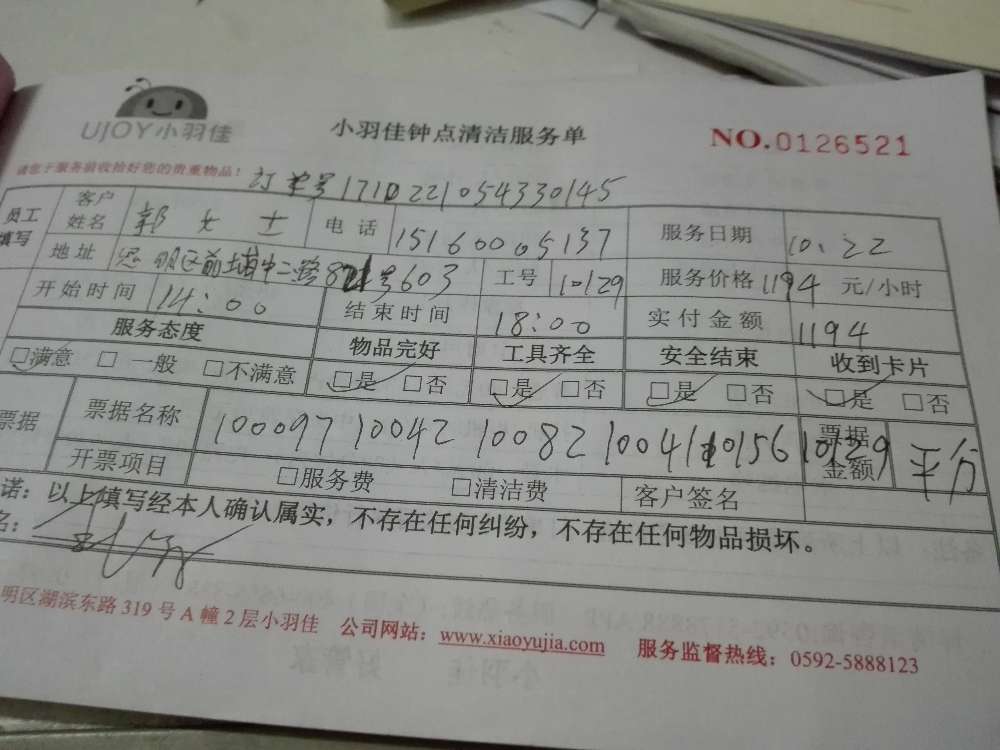 UJOY小羽佳
小羽佳钟点清洁服务单
NO.0126521
请您于服务前收拾好您的贵重物品!
订单号1710221054330145
员工填写 客户姓名 郭女士 电话 15160005137 服务日期 10.22
地址 思明区前埔中二路 号603 工号 10129 服务价格 1194 元/小时
开始时间 14:00 结束时间 18:00 实付金额 1194
服务态度 物品完好 工具齐全 安全结束 收到卡片
□满意 □一般 □不满意 □是 □否 □是 □否 □是 □否 □是 □否
票据 票据名称 100097 10042 10082 10041 10156 10129 票据金额 平分
开票项目 □服务费 □清洁费 客户签名
诺:以上填写经本人确认属实,不存在任何纠纷,不存在任何物品损坏。
名:
明区湖滨东路319号A幢2层小羽佳 公司网站:www.xiaoyujia.com 服务监督热线:0592-5888123